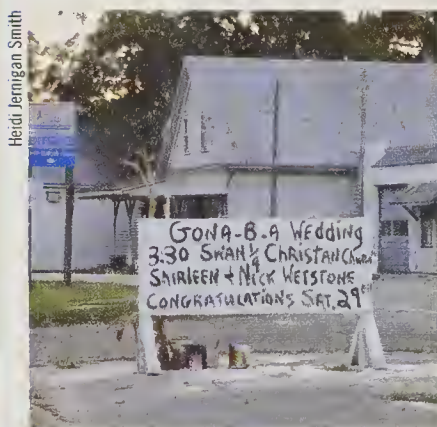 Heidi Jernigan Smith
GONA-B-A WEDDING
3:30 SWAN 1/4 CHRISTAN Church
SAIRLEEN + NICK WETSTONE
CONGRATULATIONS SAT. 29th